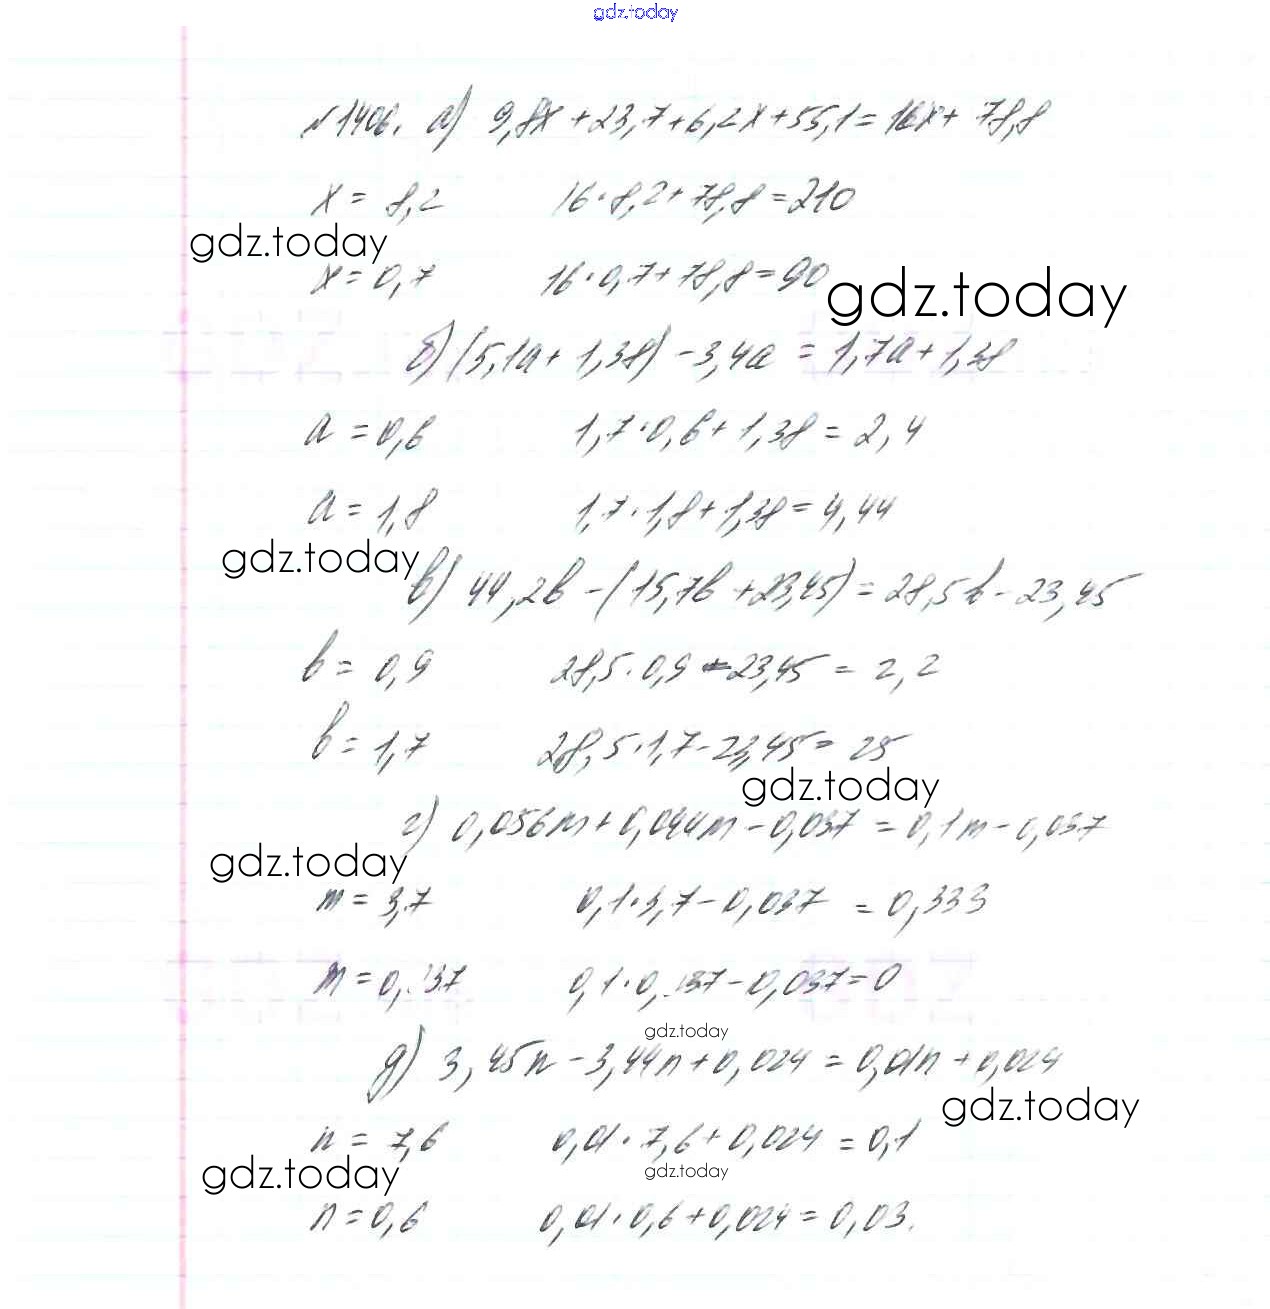 gdz.today
№1406. а) 9,8x + 23,7 + 6,2x + 55,1 = 16x + 78,8
x = 8,2 16·8,2 + 78,8 = 210
gdz.today
x = 0,7 16·0,7 + 78,8 = 90
gdz.today
б) (5,1a + 1,38) - 3,4a = 1,7a + 1,38
a = 0,6 1,7·0,6 + 1,38 = 2,4
a = 1,8 1,7·1,8 + 1,38 = 4,44
gdz.today
в) 44,2b - (15,7b + 23,45) = 28,5b - 23,45
b = 0,9 28,5·0,9 - 23,45 = 2,2
b = 1,7 28,5·1,7 - 23,45 = 25
gdz.today
г) 0,056m + 0,044m - 0,037 = 0,1m - 0,037
gdz.today
m = 3,7 0,1·3,7 - 0,037 = 0,333
m = 0,37 0,1·0,37 - 0,037 = 0
gdz.today
д) 3,45n - 3,44n + 0,024 = 0,01n + 0,024
gdz.today
n = 7,6 0,01·7,6 + 0,024 = 0,1
gdz.today
gdz.today
n = 0,6 0,01·0,6 + 0,024 = 0,03.